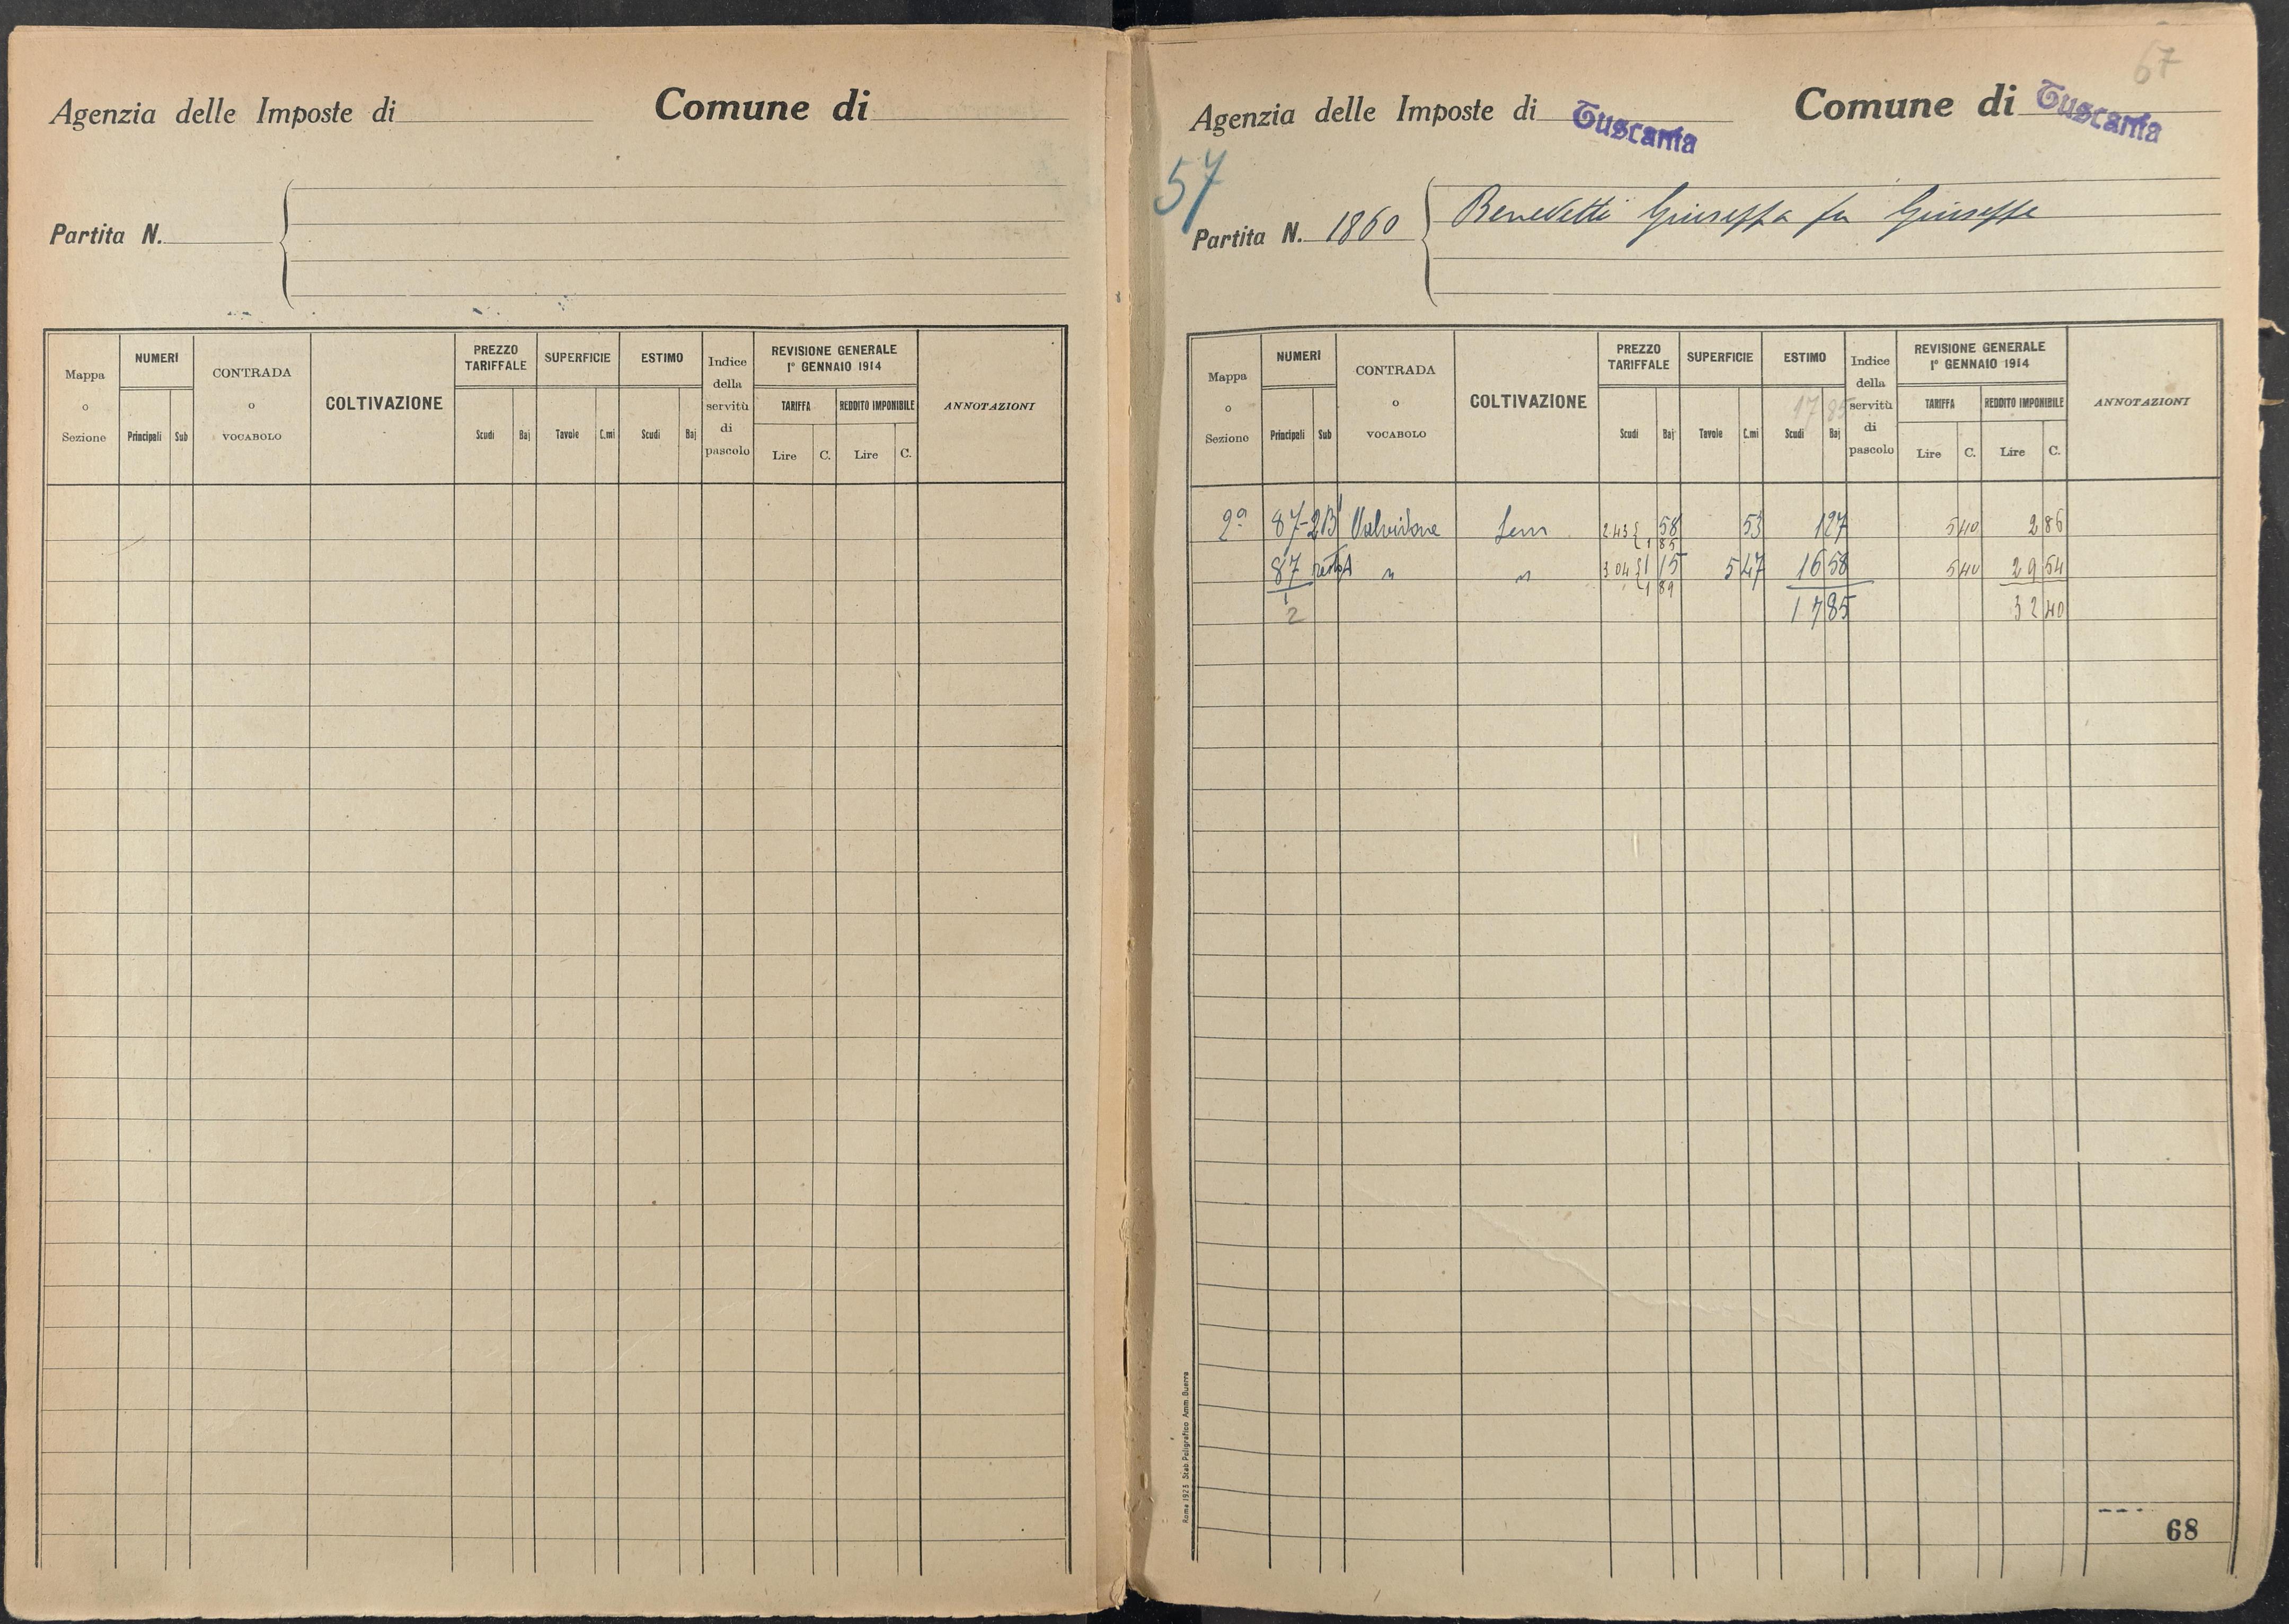 Agenzia delle Imposte di Comune di
Partita N.
Mappa o Sezione
NUMERI
Principali Sub
CONTRADA o VOCABOLO
COLTIVAZIONE
PREZZO TARIFFALE
Scudi Baj
SUPERFICIE
Tavole C.mi
ESTIMO
Scudi Baj
Indice della servitù di pascolo
REVISIONE GENERALE
1º GENNAIO 1914
TARIFFA REDDITO IMPONIBILE
Lire C. Lire C.
ANNOTAZIONI
67
Agenzia delle Imposte di Tuscania Comune di Tuscania
57
Partita N. 1860 Benedetti Giuseppa fu Giuseppe
Mappa o Sezione
NUMERI
Principali Sub
CONTRADA o VOCABOLO
COLTIVAZIONE
PREZZO TARIFFALE
Scudi Baj
SUPERFICIE
Tavole C.mi
ESTIMO
17 85
Scudi Baj
Indice della servitù di pascolo
REVISIONE GENERALE
1º GENNAIO 1914
TARIFFA REDDITO IMPONIBILE
Lire C. Lire C.
ANNOTAZIONI
2ª 87-2B Valvidone Sem 2.43 { 58 53 1 27 5 40 2 86
1 85
87 resto A " " 3 04 { 1 15 5 47 16 58 5 40 29 54
1 89
2 17 85 32 40
Roma 1923 Stab. Poligrafico Amm. Guerra
68